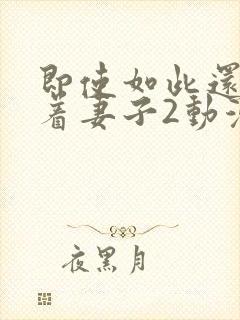 即使如此還
著妻子2動
夜黑月